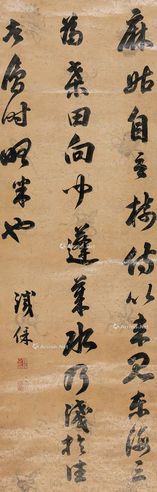 麻姑自言接侍以来见东海三
为桑田向间蓬莱水乃浅于往
者会时略半也
铁保